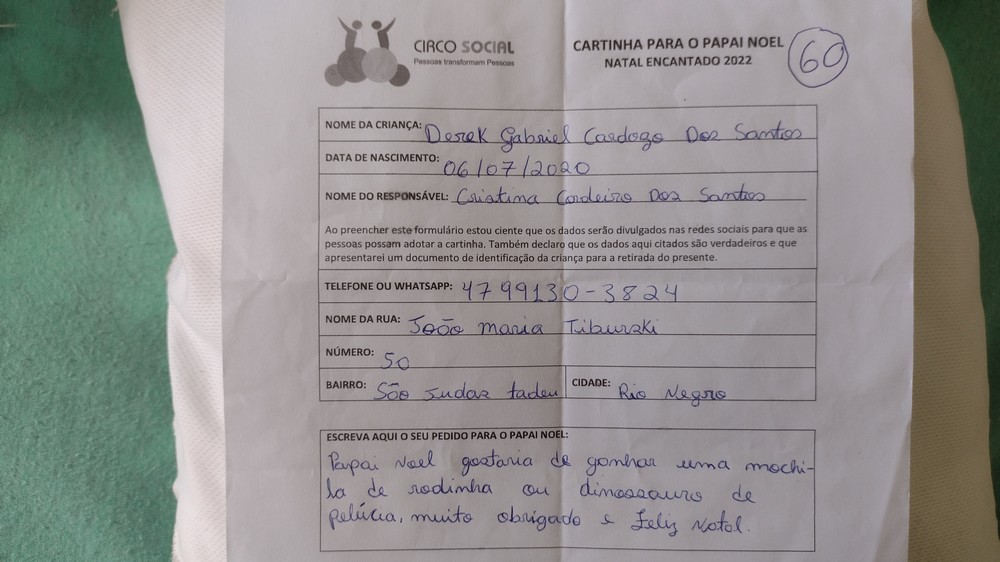 CIRCO SOCIAL
Pessoas transformam Pessoas
CARTINHA PARA O PAPAI NOEL
NATAL ENCANTADO 2022
60
NOME DA CRIANÇA: Derek Gabriel Cardozo Dos Santos
DATA DE NASCIMENTO: 06/07/2020
NOME DO RESPONSÁVEL: Cristina Cordeiro Dos Santos
Ao preencher este formulário estou ciente que os dados serão divulgados nas redes sociais para que as
pessoas possam adotar a cartinha. Também declaro que os dados aqui citados são verdadeiros e que
apresentarei um documento de identificação da criança para a retirada do presente.
TELEFONE OU WHATSAPP: 47 99130-3824
NOME DA RUA: João maria Tiburski
NÚMERO: 50
BAIRRO: São Judas tadeu CIDADE: Rio Negro
ESCREVA AQUI O SEU PEDIDO PARA O PAPAI NOEL:
Papai Noel gostaria de ganhar uma mochi-
la de rodinha ou dinossauro de
pelúcia, muito obrigado e Feliz Natal.